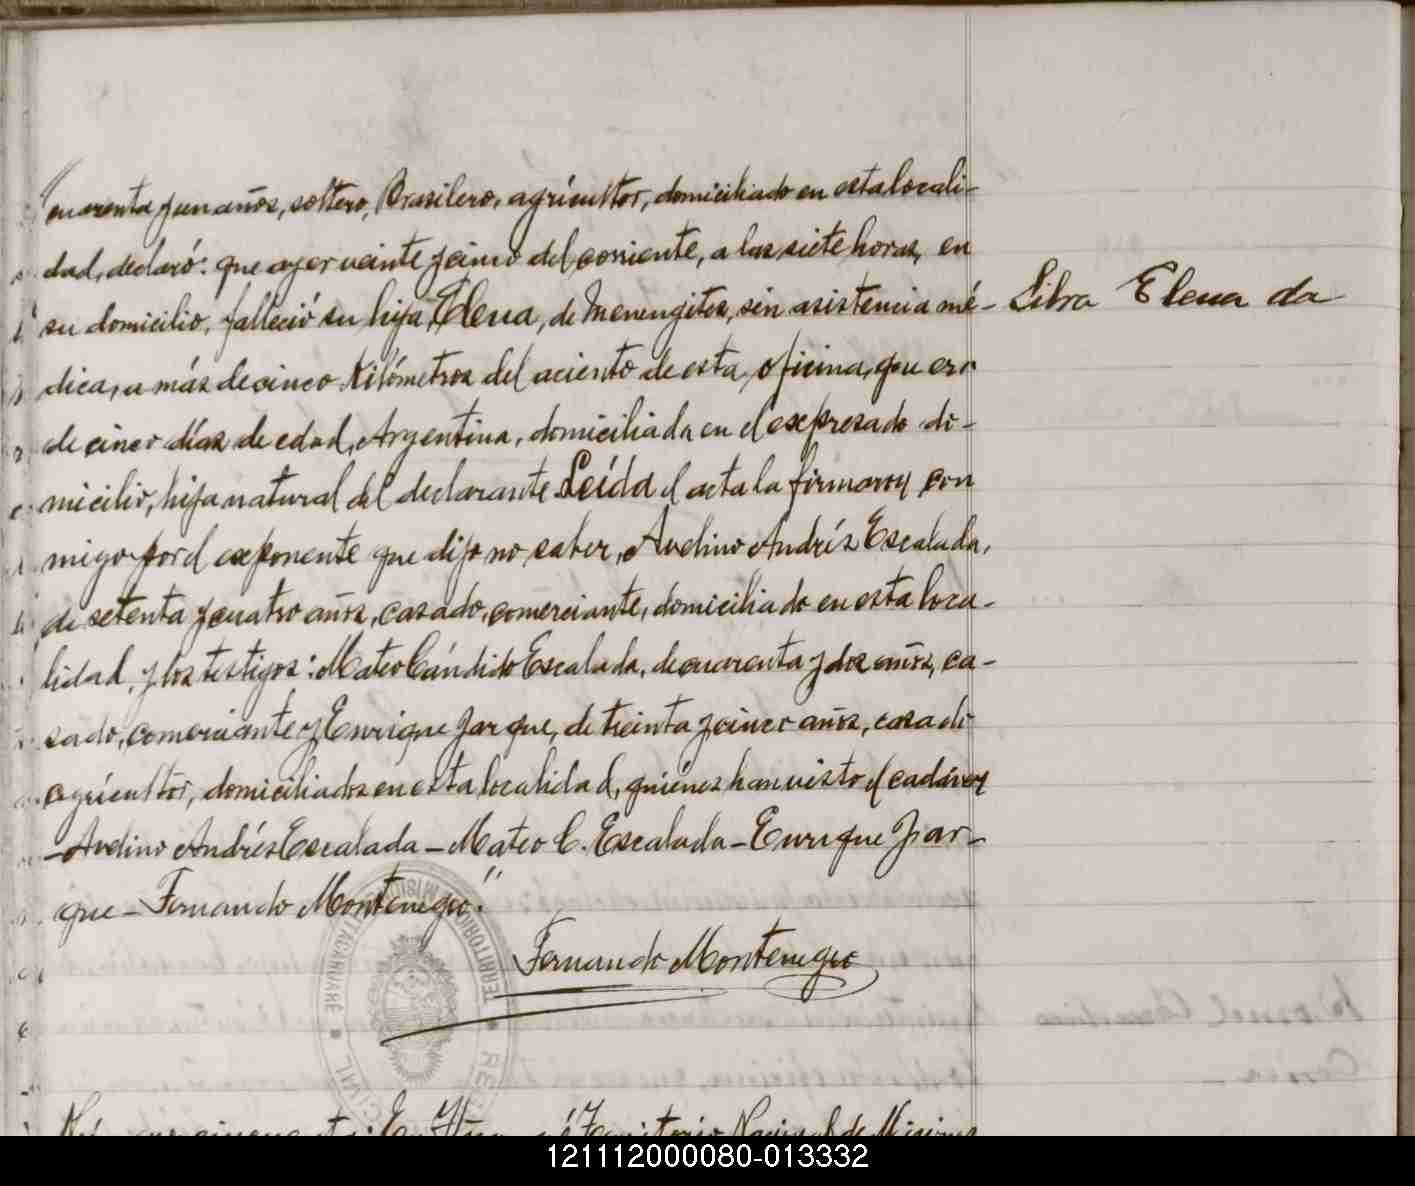 cuarenta y un años, soltero, Brasilero, agricultor, domiciliado en esta locali-
dad, declaró: que ayer veinte y cinco del corriente, a las siete horas, en
su domicilio, falleció su hija Elena, de Menengites, sin asistencia mé-
Libra Elena da
dica, a más de cinco Kilómetros del aciento de esta oficina, que era
de cinco días de edad, Argentina, domiciliada en el expresado do-
micilio, hija natural del declarante. Leída el acta la firmaron con
migo por el exponente que dijo no saber, Avelino Andrés Escalada,
de setenta y cuatro años, casado, comerciante, domiciliado en esta loca-
lidad, y los testigos: Mateo Cándido Escalada, de cuarenta y dos años, ca-
sado, comerciante y Enrique Jarque, de treinta y cinco años, casado
agricultor, domiciliados en esta localidad, quiénes han visto el cadáver
-Avelino Andrés Escalada - Mateo C. Escalada - Enrique Jar-
que - Fernando Montenegro."
Fernando Montenegro
TERRITORIO MISIONES ITACARUARE REGISTRO CIVIL
cincuenta: En Territorio Nacional de Misiones
121112000080-013332